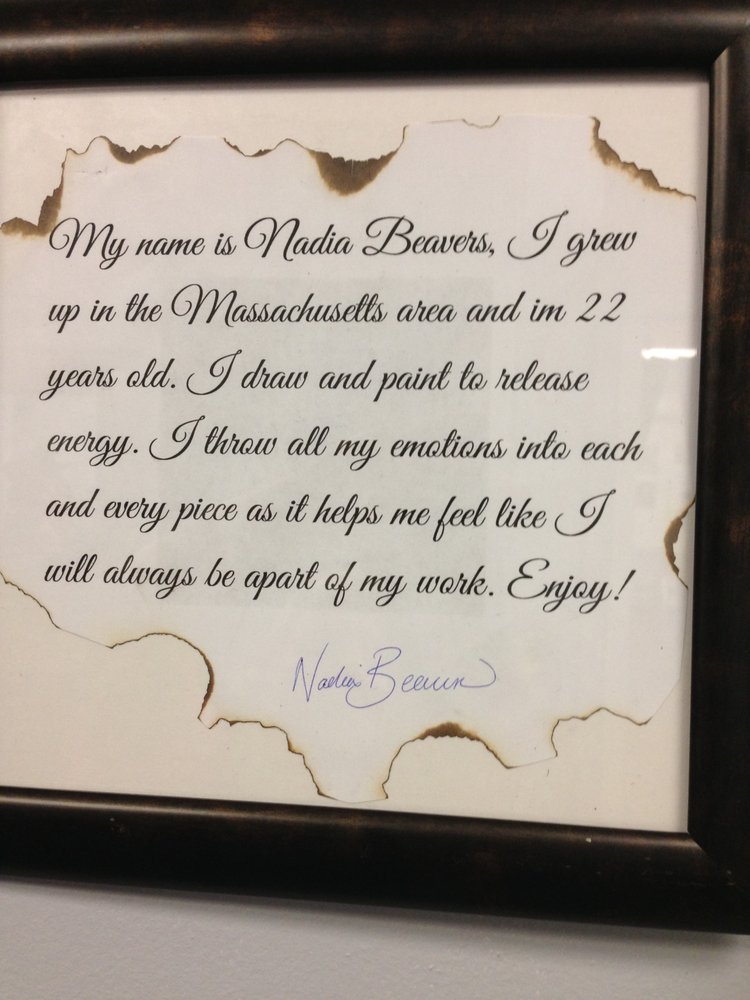 My name is Nadia Beavers, I grew
up in the Massachusetts area and im 22
years old. I draw and paint to release
energy. I throw all my emotions into each
and every piece as it helps me feel like I
will always be apart of my work. Enjoy!
Nadia Beavers